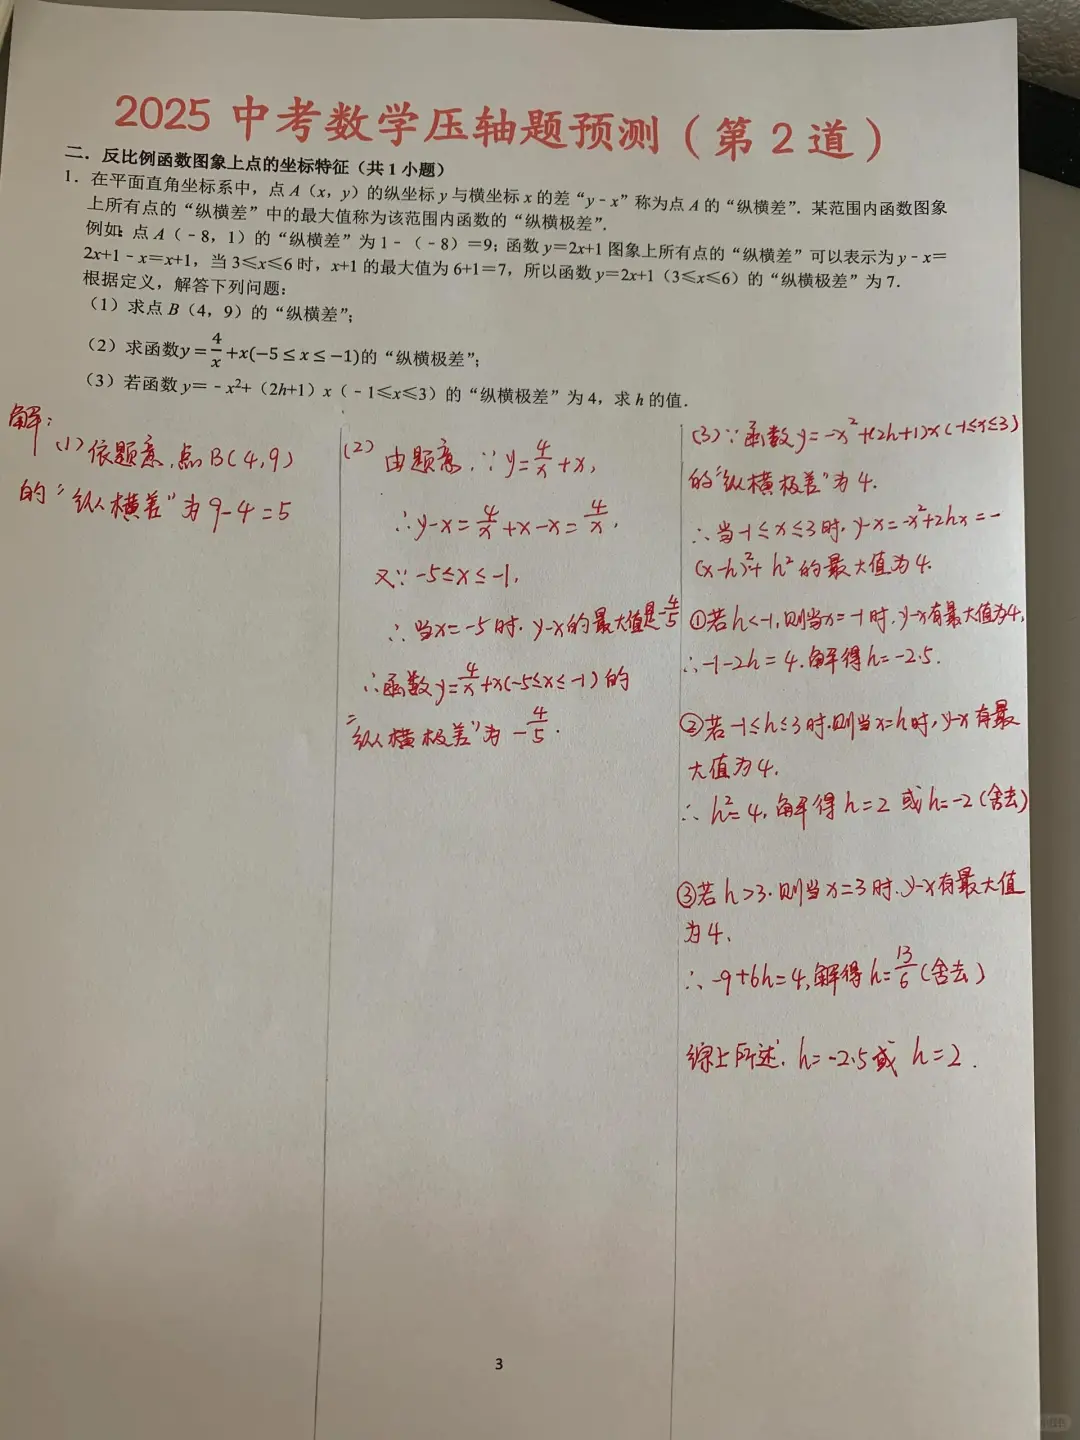 2025 中考数学压轴题预测（第 2 道）
二．反比例函数图象上点的坐标特征（共 1 小题）
1．在平面直角坐标系中，点 A（x，y）的纵坐标 y 与横坐标 x 的差“y﹣x”称为点 A 的“纵横差”．某范围内函数图象
上所有点的“纵横差”中的最大值称为该范围内函数的“纵横极差”．
例如：点 A（﹣8，1）的“纵横差”为 1﹣（﹣8）＝9；函数 y＝2x+1 图象上所有点的“纵横差”可以表示为 y﹣x＝
2x+1﹣x＝x+1，当 3≤x≤6 时，x+1 的最大值为 6+1＝7，所以函数 y＝2x+1（3≤x≤6）的“纵横极差”为 7．
根据定义，解答下列问题：
（1）求点 B（4，9）的“纵横差”；
（2）求函数y = 4/x +x(−5 ≤ x ≤ −1)的“纵横极差”；
（3）若函数 y＝﹣x²+（2h+1）x（﹣1≤x≤3）的“纵横极差”为 4，求 h 的值．
解：
(1) 依题意，点B(4,9)
的“纵横差”为 9-4=5
(2) 由题意，∵ y=4/x+x,
∴ y-x=4/x+x-x=4/x,
又∵ -5≤x≤-1,
∴ 当x=-5时，y-x的最大值是-4/5
∴函数y=4/x+x(-5≤x≤-1)的
“纵横极差”为 -4/5.
(3) ∵函数y=-x²+(2h+1)x(-1≤x≤3)
的“纵横极差”为4.
∴当-1≤x≤3时，y-x=-x²+2hx=-
(x-h)²+h²的最大值为4.
①若h<-1,则当x=-1时，y-x有最大值为4,
∴-1-2h=4.解得h=-2.5.
②若-1≤h≤3时.则当x=h时，y-x有最
大值为4.
∴ h²=4,解得h=2或h=-2(舍去)
③若h>3.则当x=3时.y-x有最大值
为4.
∴ -9+6h=4,解得h=13/6(舍去)
综上所述，h=-2.5或 h=2.
3